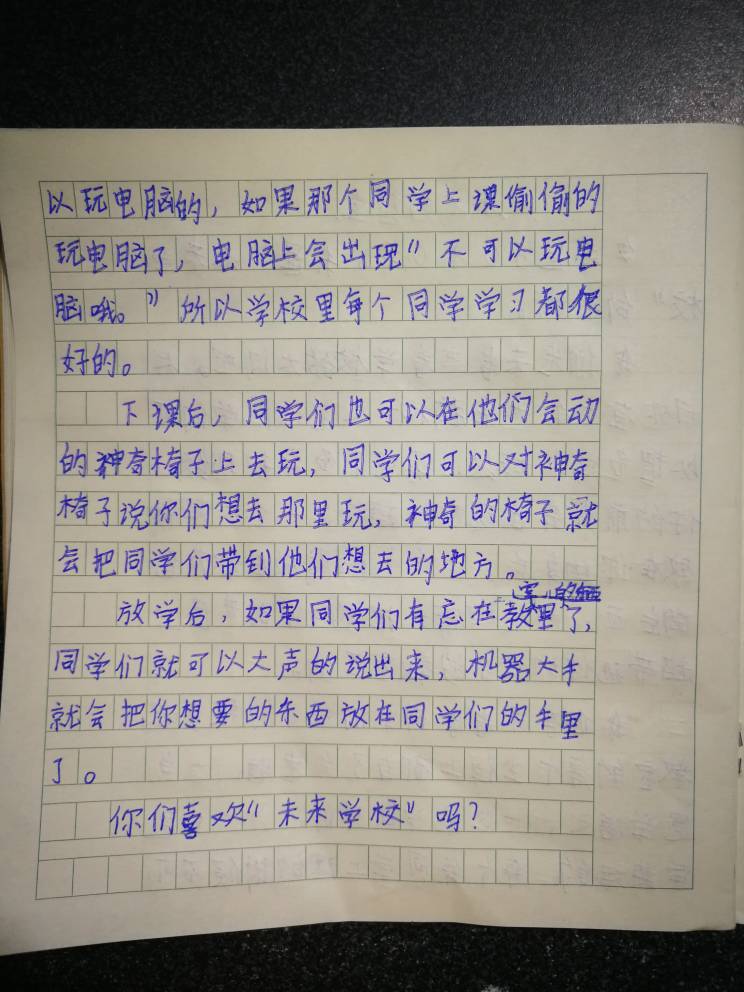 以玩电脑的，如果那个同学上课偷偷的
玩电脑了，电脑上会出现“不可以玩电
脑哦。”所以学校里每个同学学习都很
好的。
下课后，同学们也可以在他们会动
的神奇椅子上去玩，同学们可以对神奇
椅子说你们想去那里玩，神奇的椅子就
会把同学们带到他们想去的地方。
放学后，如果同学们有忘在教室里的东西了，
同学们就可以大声的说出来，机器大手
就会把你想要的东西放在同学们的手里
了。
你们喜欢“未来学校”吗？